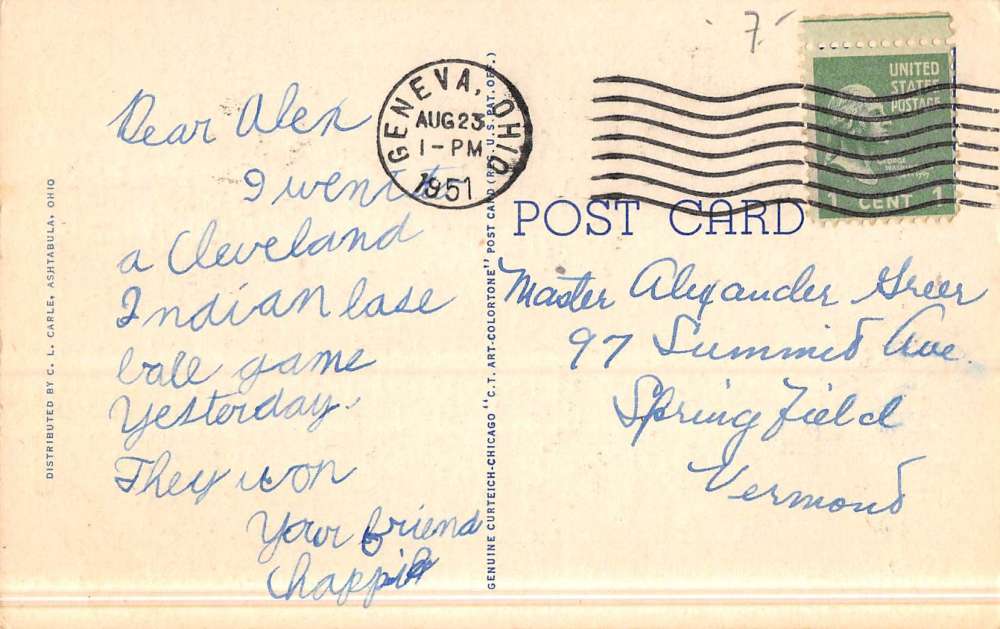 7
UNITED
STATES
POSTAGE
GEORGE
1 CENT 1
GENEVA, OHIO
AUG 23
1-PM
1951
POST CARD
Dear Alex
I went to
a Cleveland
Indian base
ball game
Yesterday.
They won
Your friend
Master Alexander Greer
97 Summit Ave.
Springfield
Vermont
DISTRIBUTED BY C. L. CARLE, ASHTABULA, OHIO
GENUINE CURTEICH-CHICAGO "C.T. ART-COLORTONE" POST CARD (REG. U.S. PAT. OFF.)